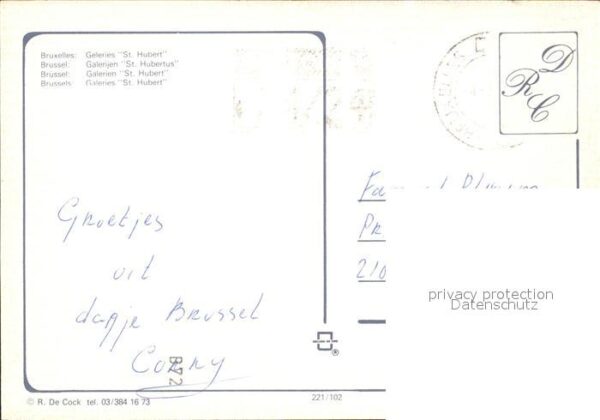 Bruxelles: Galeries "St. Hubert"
Brussel: Galerijen "St. Hubertus"
Brüssel: Galerien "St. Hubert"
Brussels: Galeries "St. Hubert"
DRC
Groetjes
uit
dagje Brussel
Conny
872
210
privacy protection
Datenschutz
© R. De Cock tel. 03/384 16 73
221/102